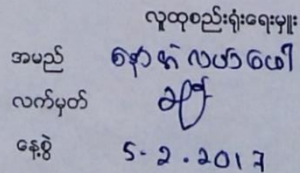 လူထုစည်းရုံးရေးမှူး
အမည် နော်အဲလယာဖေါ
လက်မှတ်
နေ့စွဲ 5-2-2017